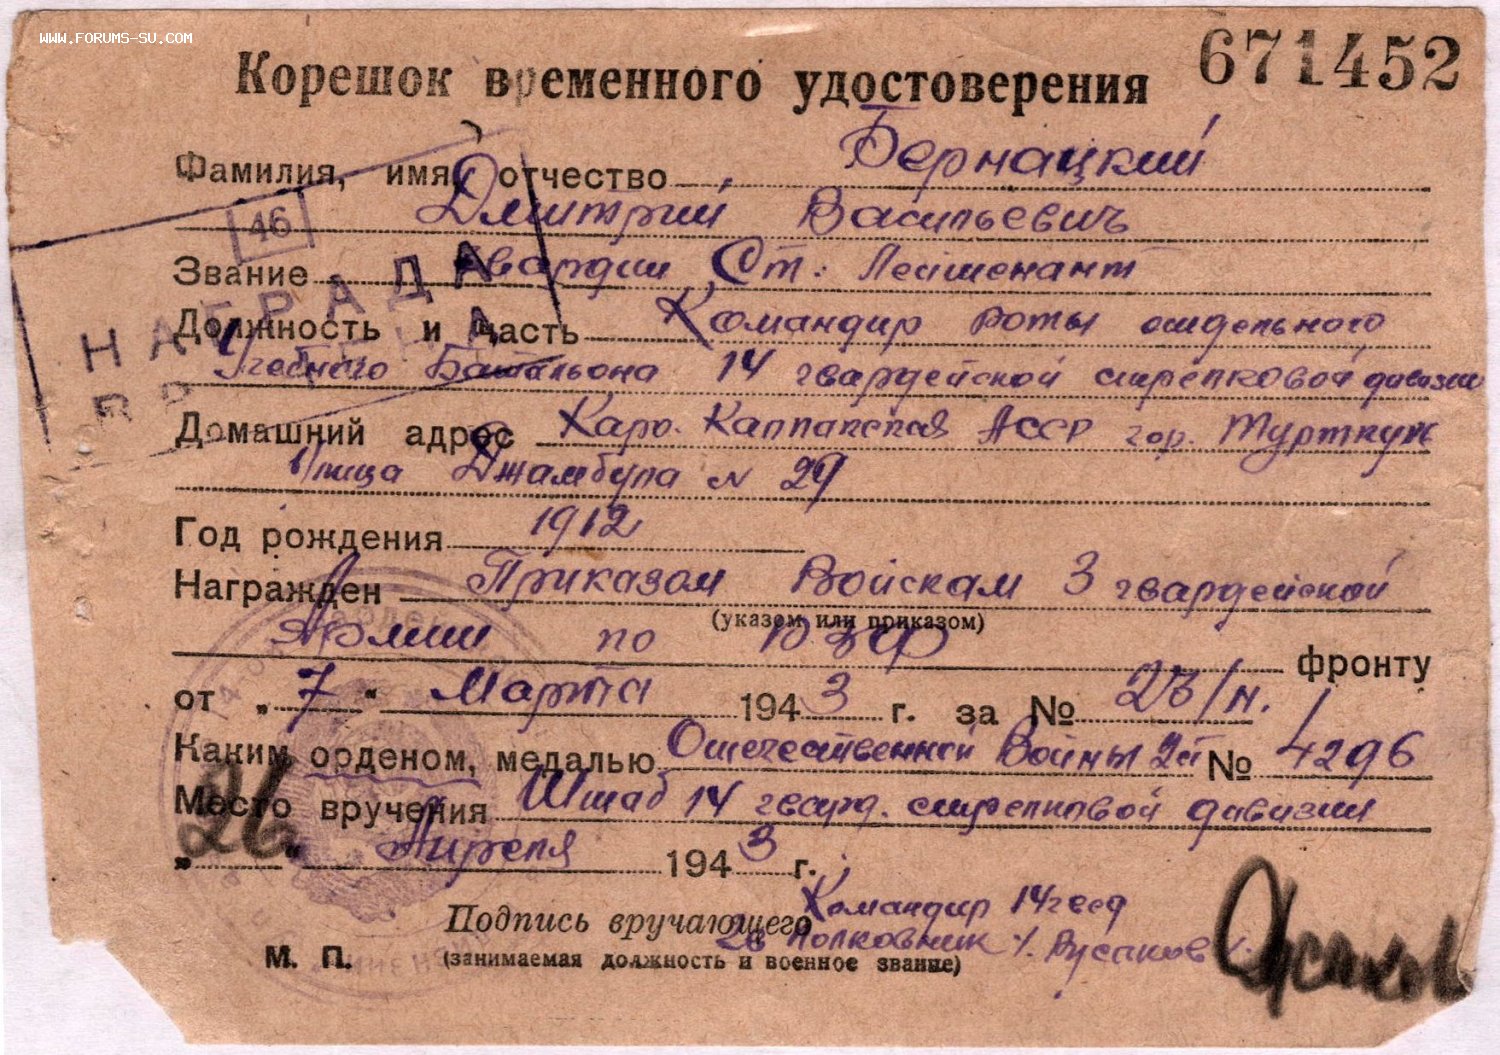 WWW.FORUMS-SU.COM
671452
Корешок временного удостоверения
Фамилия, имя, отчество Бернацкий
Дмитрий Васильевич
46
Звание Гвардии Ст. Лейтенант
НАГРАДА
Должность и часть Командир роты отдельного
Учебного Батальона 14 гвардейской стрелковой дивизии
Домашний адрес Каро. Калпакская АССР гор. Турткуль
Улица Джамбула N 29
Год рождения 1912
Награжден Приказом Войскам 3 гвардейской
(указом или приказом)
Армии по ЮЗФ фронту
от „7" Марта 1943 г. за № 23/н.
Каким орденом, медалью Отечественной Войны 2ст № 4296
Место вручения Штаб 14 гвард. стрелковой дивизии
„26" Апреля 1943 г.
Подпись вручающего Командир 14 гвсд
М. П. (занимаемая должность и военное звание)
гв полковник /Русаков/
Русаков